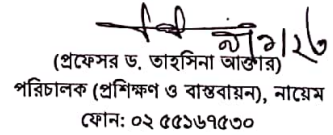 ৯।৯।২৩
(প্রফেসর ড. তাহসিনা আক্তার)
পরিচালক (প্রশিক্ষণ ও বাস্তবায়ন), নায়েম
ফোন: ০২ ৫৫১৬৭৫৩০